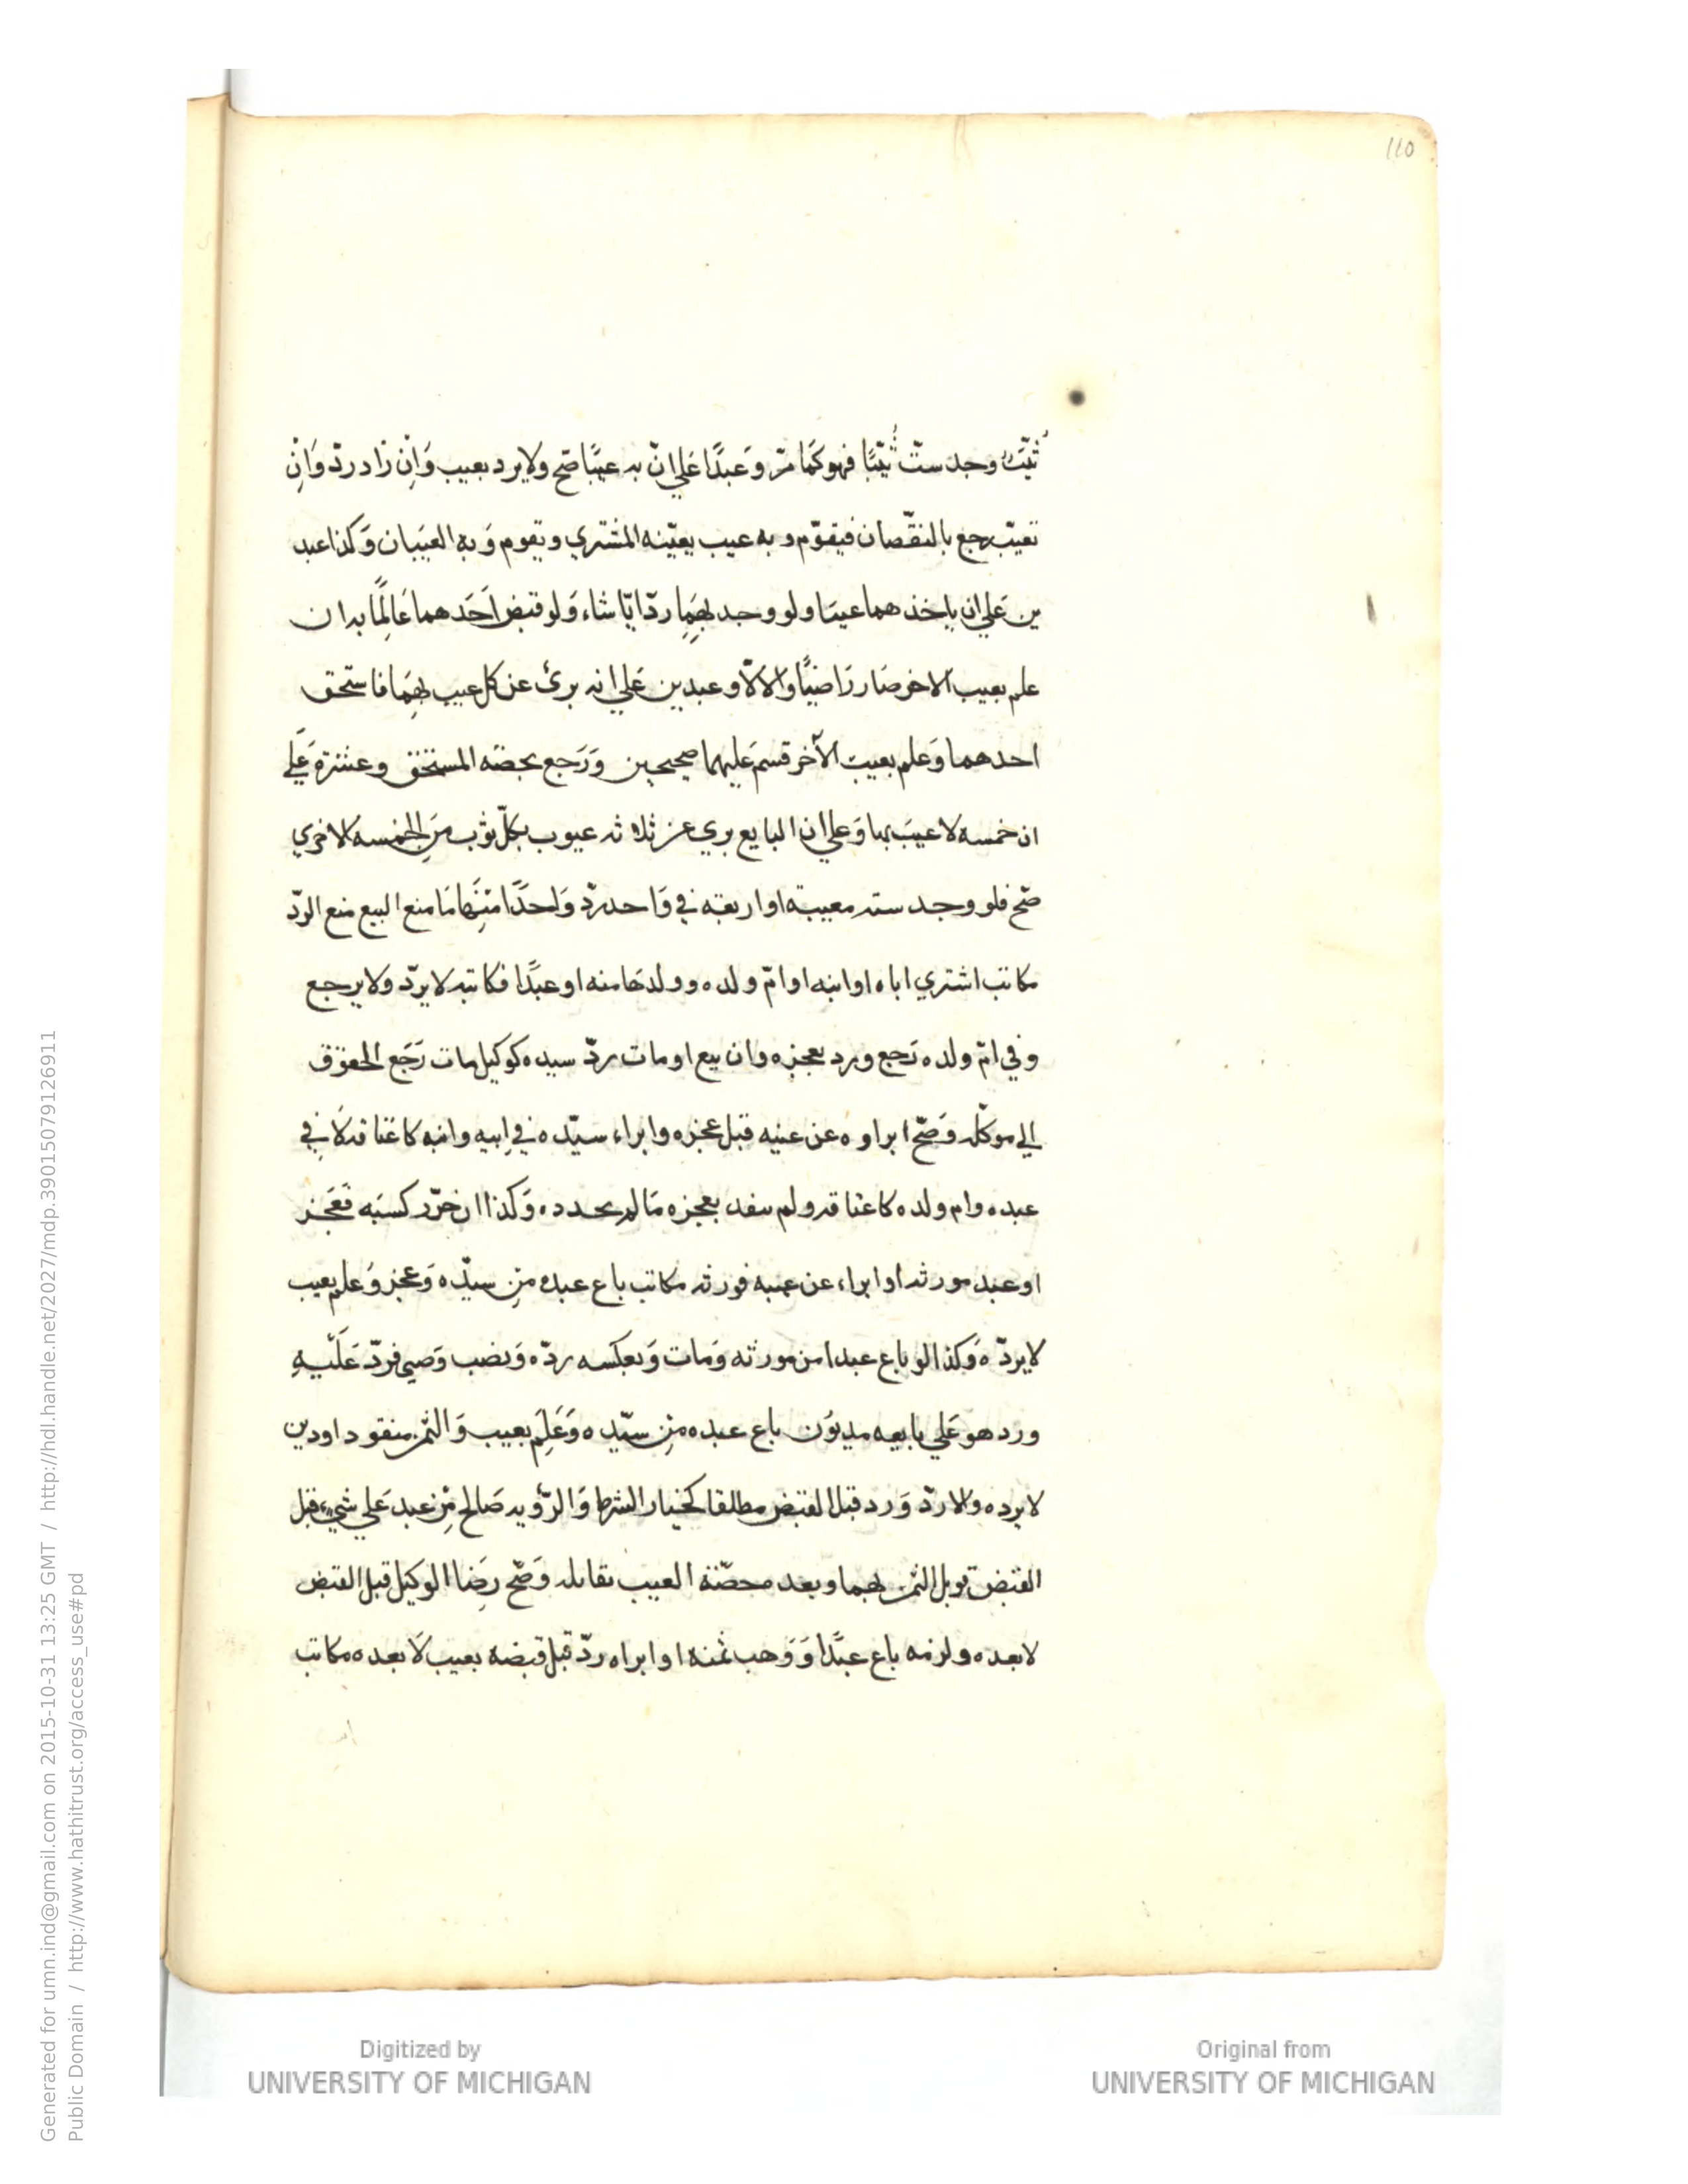 110
ثيّب وجد ستّ ثيّبًا فهو كَمَا مرّ وَعَبدًا عَلي انّ به عيبًا صَح ولا يرد بعيب وَاِن زاد ردّ وَاِن
تعيّب رجع بالنقصان فيقوّم و به عيب يعيّنه المشتري ويقوم وَبهِ العيبان وَكذا عبد
ين عَلي ان باحدهما عيبا ولو وجد بهمَا ردّ ايّا شاء وَلو قبض اَحَدهما عَالِمًا بدا ن
علم بعيب الاخر صَار رَاضيًا وَالاّ لاَ و عبدين عَلي انه برئ عن كل عيب بهمَا فاستحق
احدهما وَعلم بعيب الآخر قسم عَليهما صحيحين وَرَجع بحصّه المستحق وعشرة عَلي
ان خمسه لا عيبَ بها وَعلي ان البايع بري عن ثلاثه عيوب بكلّ ثوْب مِنَ الخمسه الاخري
صَح فلو وجد سته معيبة او اربعة في وَاحد ردّ وَاحدًا منهَا مَا منع البيع منع الردّ
مكاتب اشتري اباه او ابنه او امّ ولده وولدهَا منه او عبدًا فكاتبه لا يردّ ولا يرجع
وفي امّ ولده رَجع ورد بعجزه وان بيع او مات ردّ سيده كوكيل مات رَجَع الحقوق
الي موكله وَصَحّ ابراوه عن عيبه قبل عجزه وابراء سيّده في اِبيه وابنه كاعتاقه لاَ في
عبده وام ولده كاعتاقه ولم ينفد بعجزه مَا لم يحدده وَكذا ان حرّر كسبَه فَعَجز
او عبد مورثه او ابراء عن عيبه فورثه مكاتب باع عبده مِن سيّده وَعجز وَعلم بعيب
لا يردّه وَكذا لو باع عبدا من مورثه وَمات وَبعكسه ردّه وَنصب وَصي فردّ عَلَيْهِ
ورد هو عَلي بايعه مديُون باع عبده مِن سيّده وَعَلِم بعيب وَالثمن منقود او دين
لا يرده والا ردّ وَرد قبل القبض مطلقا كخيار الشرط وَالرُؤيه صَالح مِن عبد عَلي شيء قبل
القبض قوبل الثمن بهما وبعد محصّته العيب تقابله وَصَحّ رضَا الوكيل قبل القبض
لا بعده ولزمه باع عبدًا وَوَهب ثمنه او ابراه ردّ قبل قبضه بعيب لاَ بعده مكاتب
Generated for umn.ind@gmail.com on 2015-10-31 13:25 GMT / http://hdl.handle.net/2027/mdp.39015079126911
Public Domain / http://www.hathitrust.org/access_use#pd
Digitized by
UNIVERSITY OF MICHIGAN
Original from
UNIVERSITY OF MICHIGAN